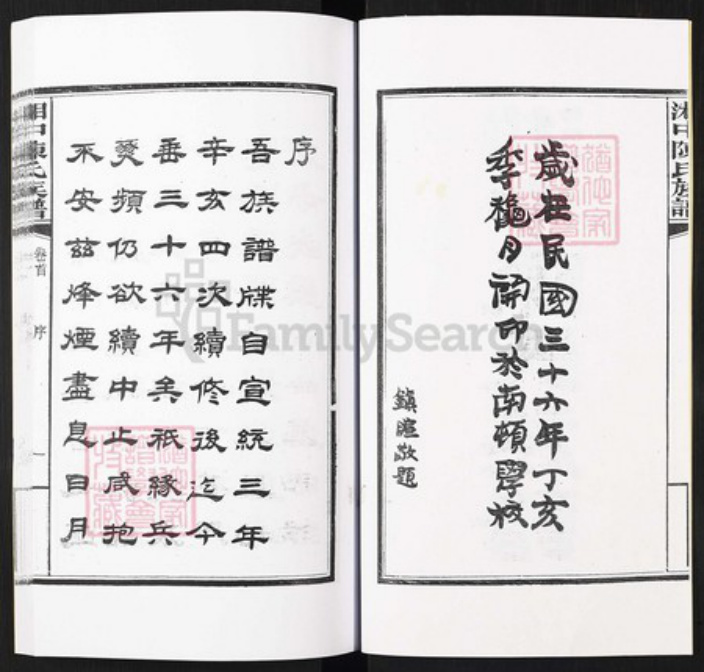 湘中陳氏族譜
歲在民國三十六年丁亥
季龝月 開印於南頓學校
鎮 敬題
序
吾族譜牒自宣統三年
辛亥四次續修後迄今
垂三十六年矣祇緣兵
燹頻仍欲續中止咸抱
不安茲烽煙盡息日月
湘中陳氏族譜
卷首
序
一
FamilySearch